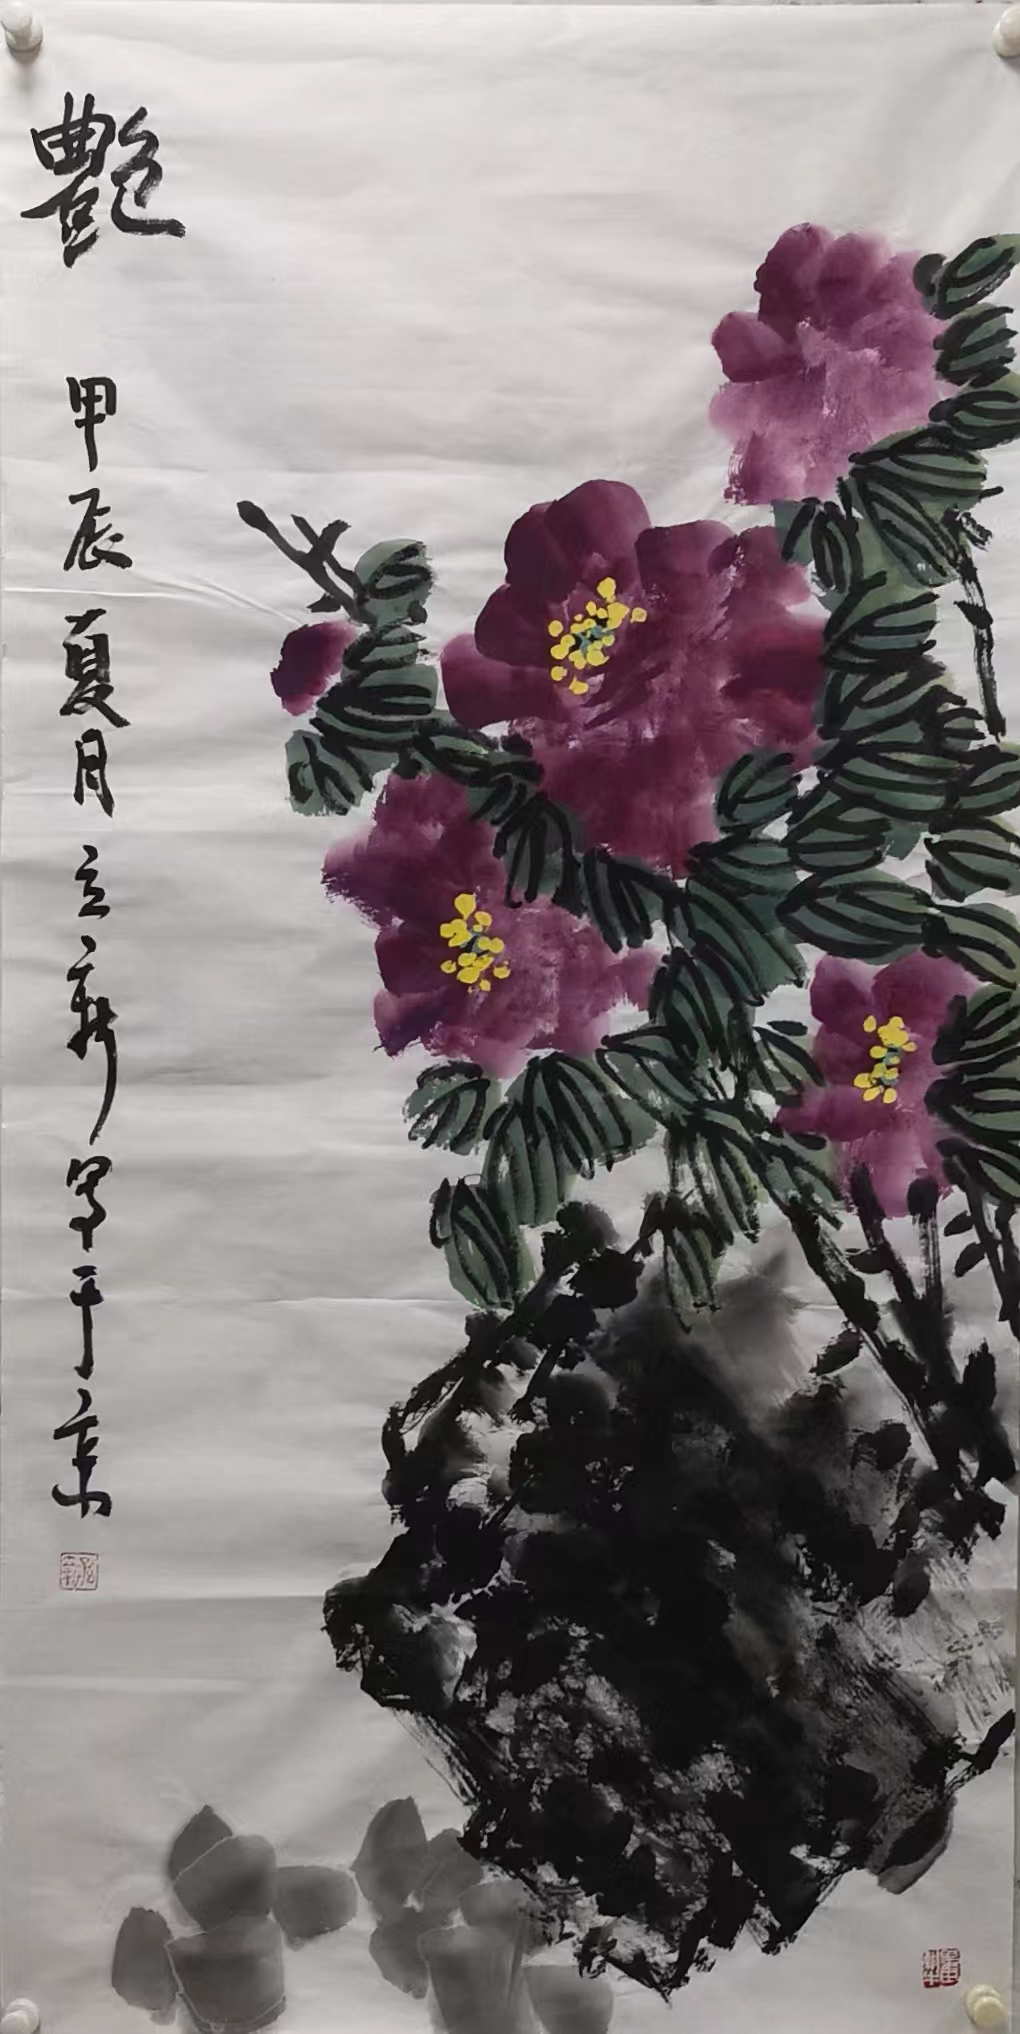 艷
甲辰夏月立新写于京